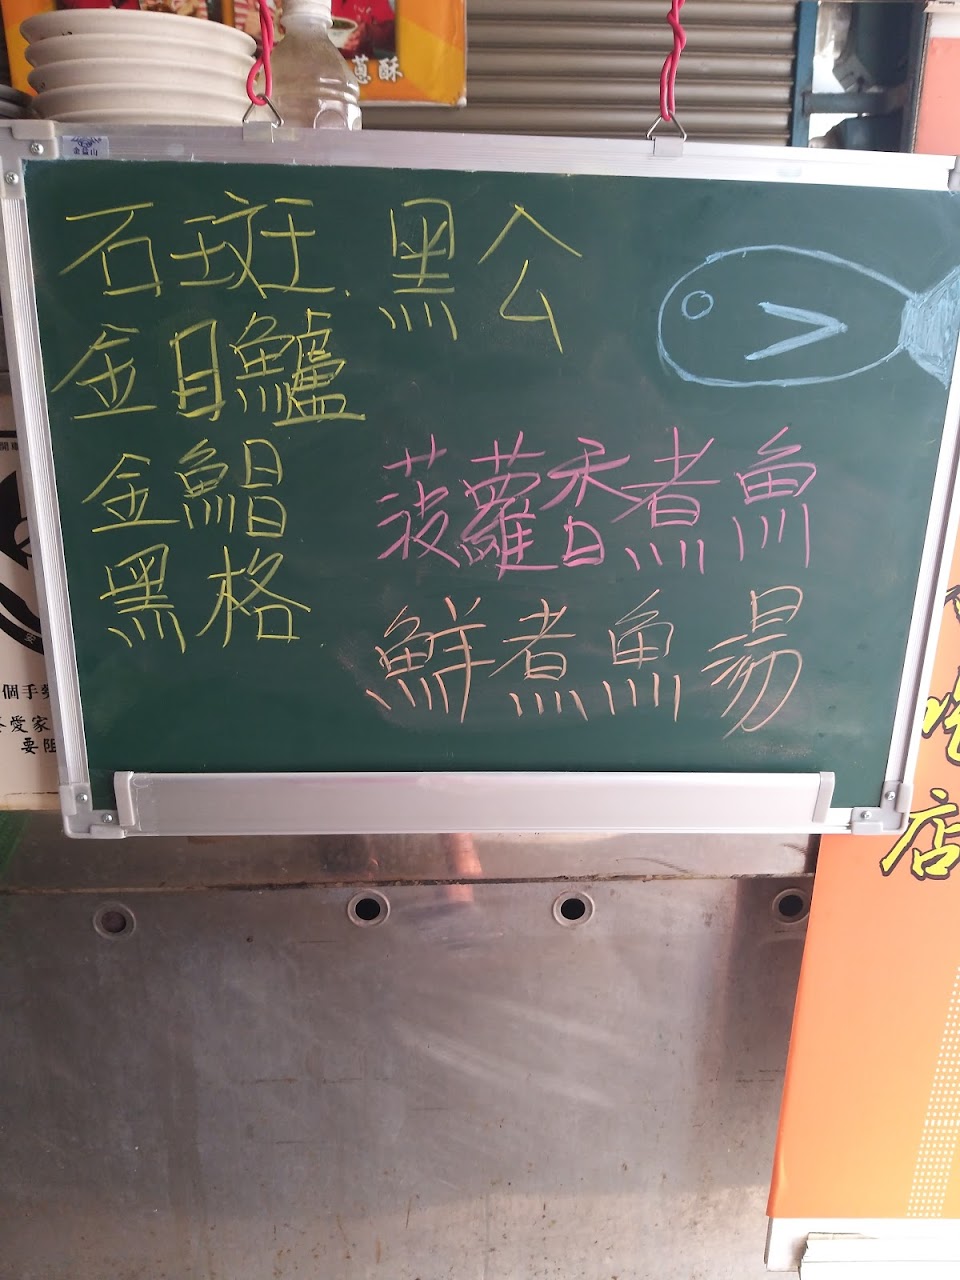 蔥酥
石斑. 黑公
金目鱸
金鯧
黑格
菠蘿香煮魚
鮮煮魚湯
個手勢
愛家
要阻
店